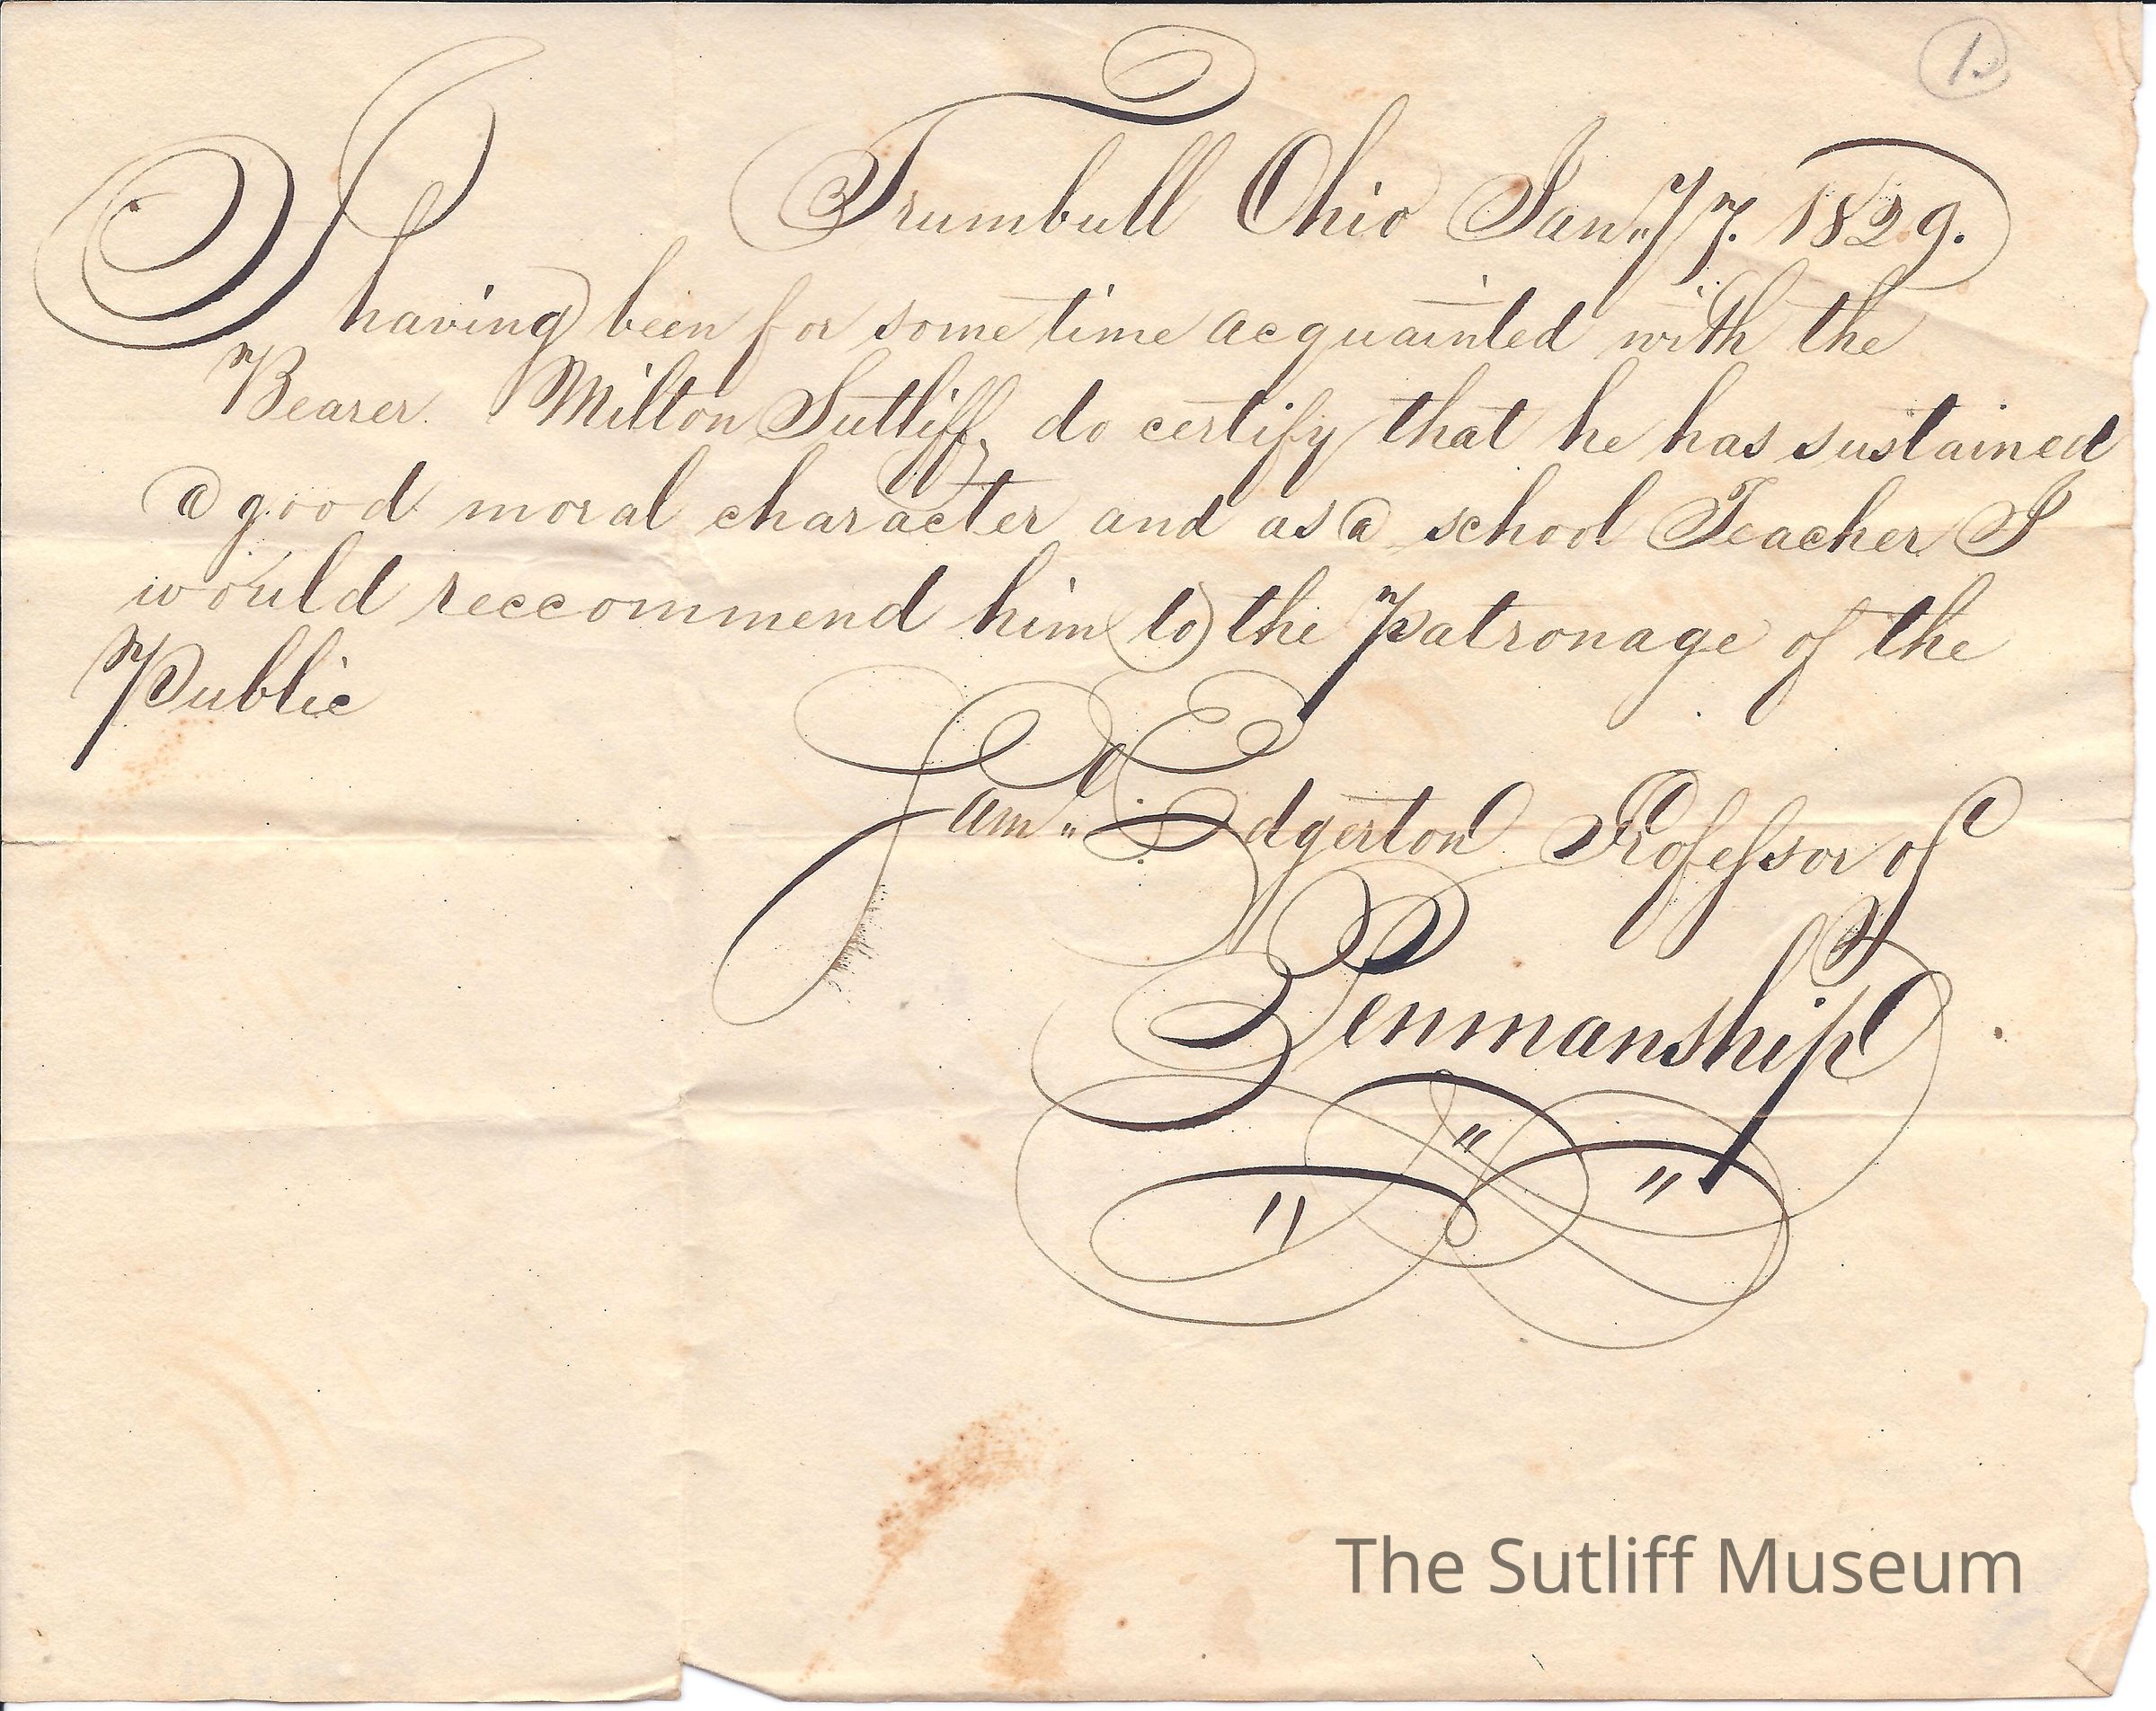 1.
Trumbull Ohio Jan.,y 7. 1829.
I having been for some time acquainted with the
Bearer. Milton Sutliff, do certify that he has sustained
a good moral character and as a school Teacher I
would reccommend him to the Patronage of the
Public
Edgerton Professor of
Penmanship
The Sutliff Museum